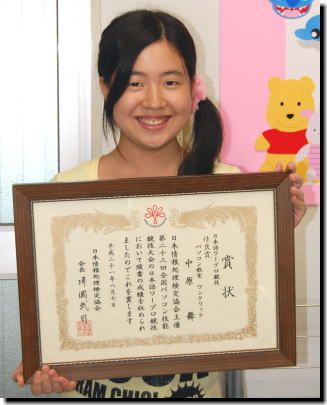 賞状
日本語ワープロ競技
佳良賞
パソコン教室 ワンクリック
中原 舞
日本情報処理検定協会主催
第二十三回全国パソコン技能
競技大会の日本語ワープロ競技
において頭書の成績を収められ
ましたのでこれを賞します
平成二十一年八月七日
日本情報処理検定協会
会長